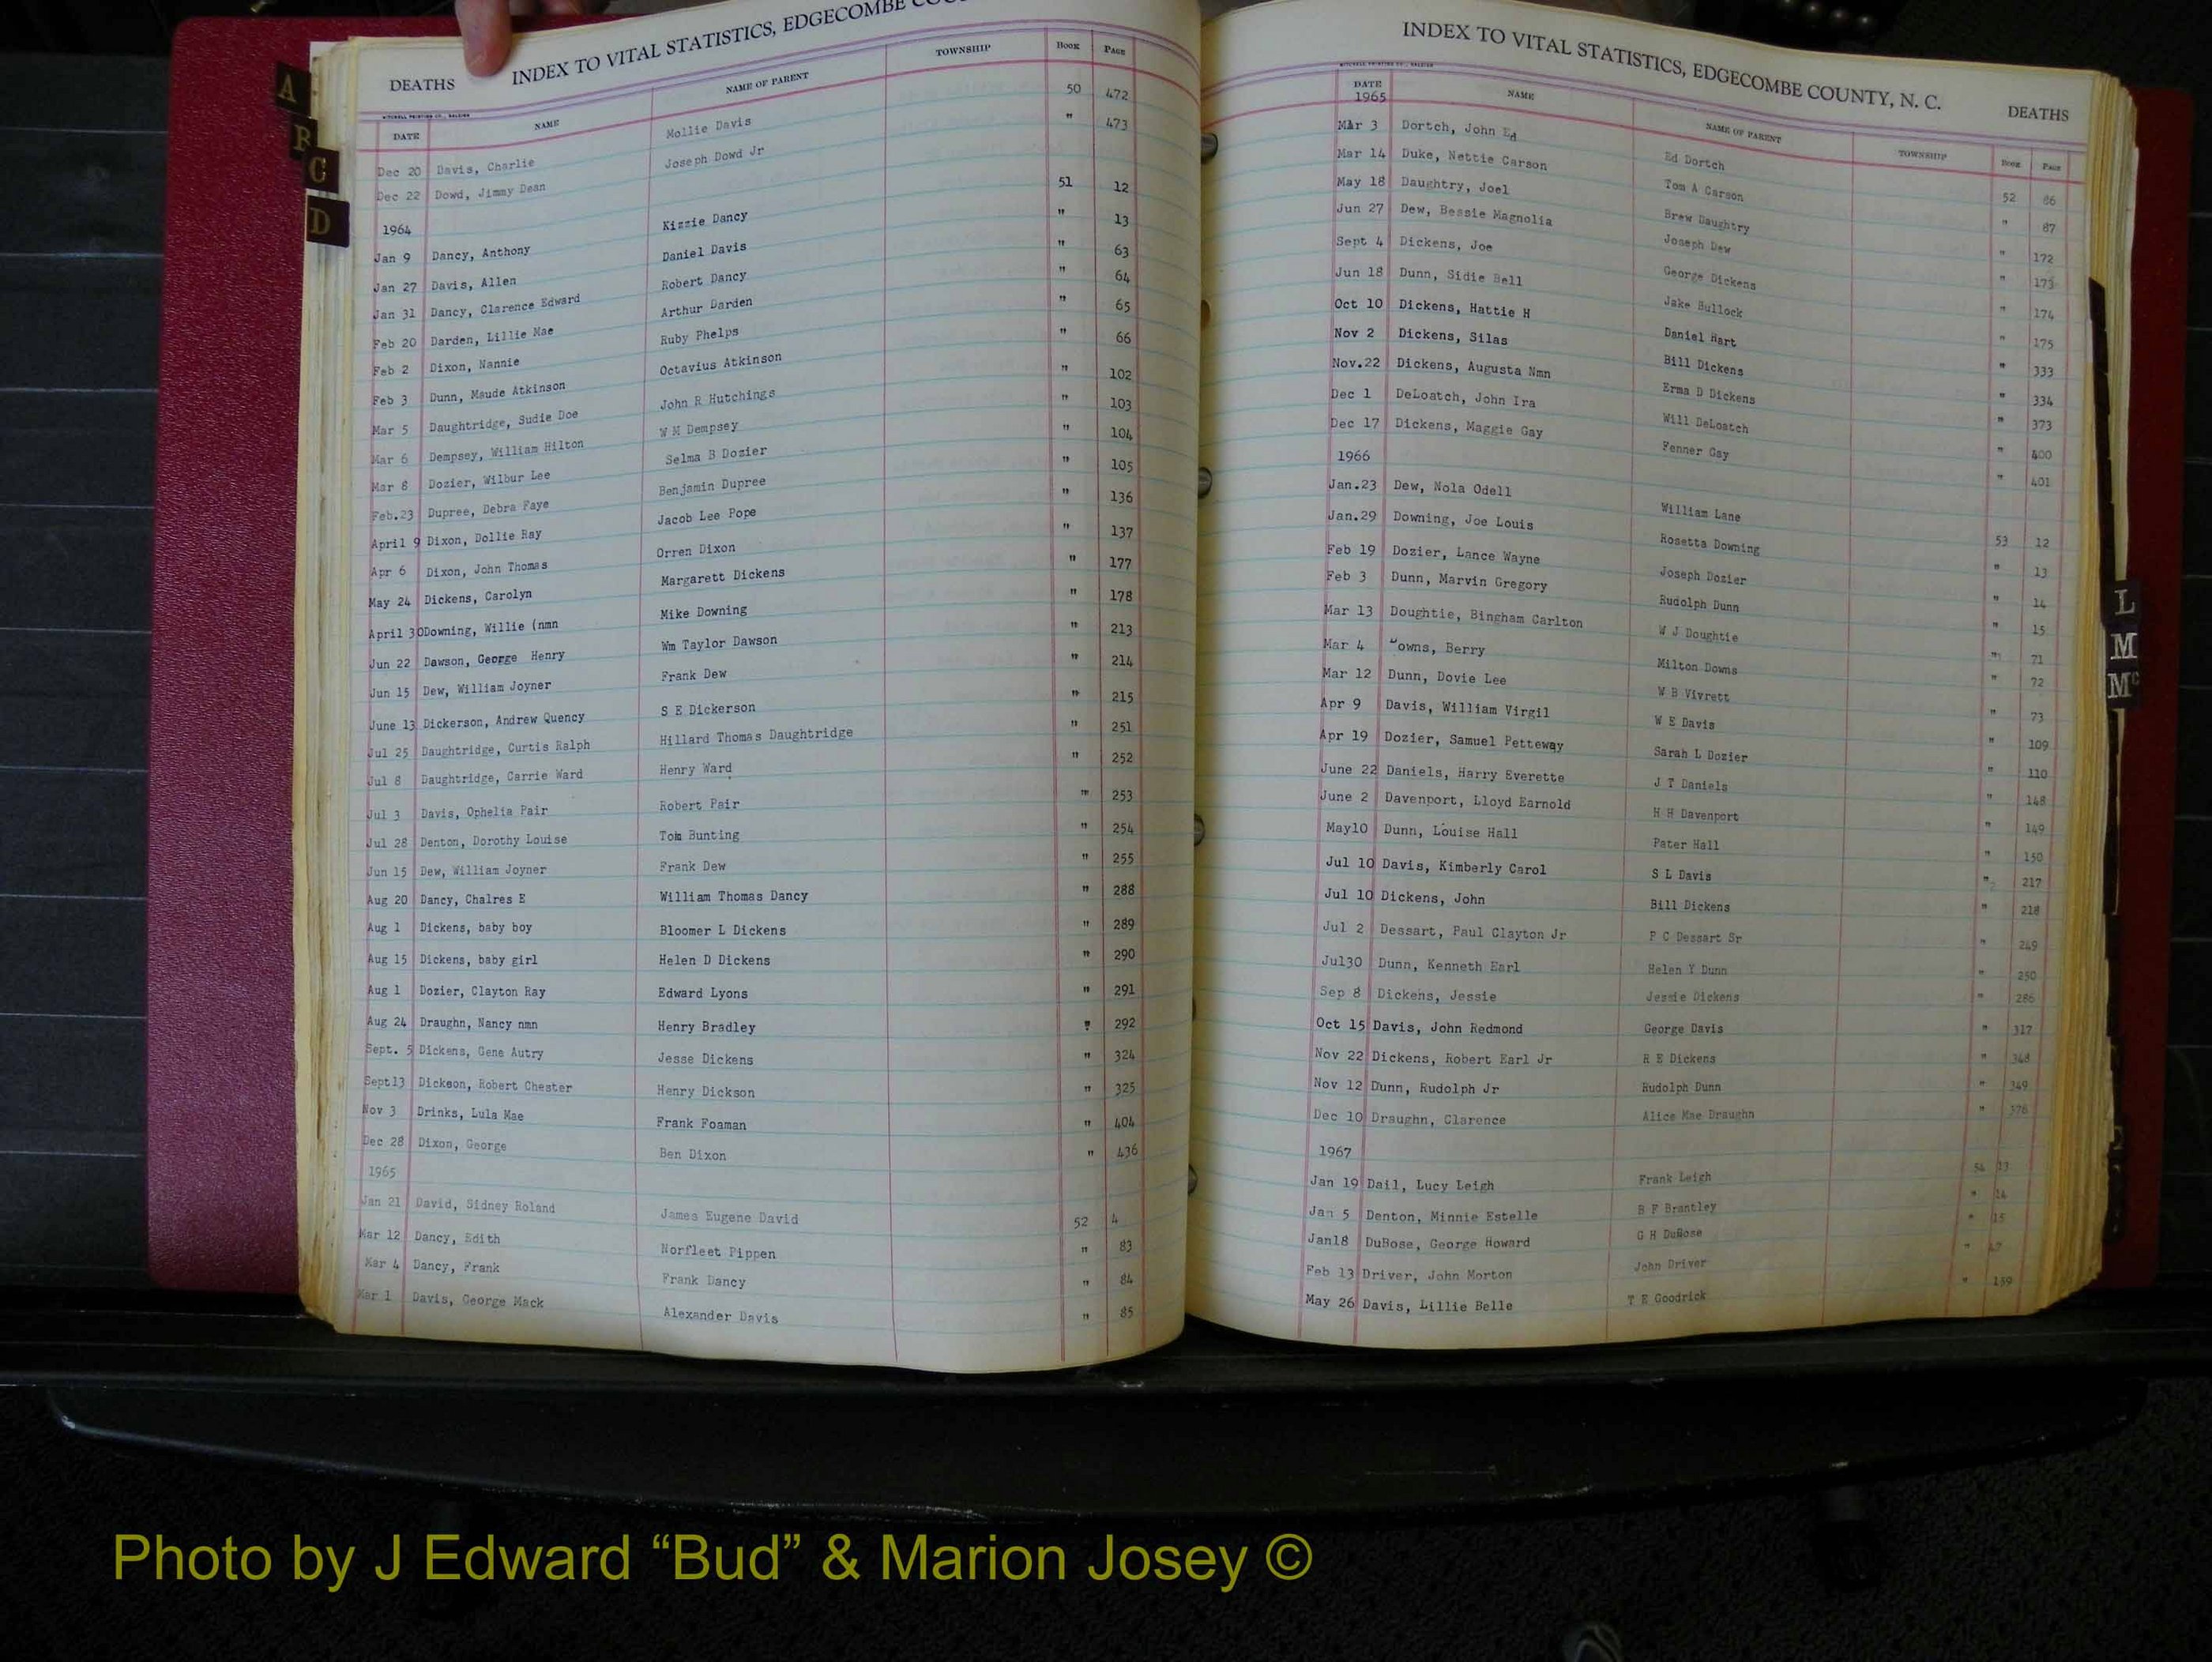 A
B
C
D
DEATHS INDEX TO VITAL STATISTICS, EDGECOMBE
MITCHELL PRINTING CO., RALEIGH
DATE NAME NAME OF PARENT TOWNSHIP BOOK PAGE
Dec 20 Davis, Charlie Mollie Davis 50 472
Dec 22 Dowd, Jimmy Dean Joseph Dowd Jr " 473
1964
Jan 9 Dancy, Anthony Kizzie Dancy 51 12
Jan 27 Davis, Allen Daniel Davis " 13
Jan 31 Dancy, Clarence Edward Robert Dancy " 63
Feb 20 Darden, Lillie Mae Arthur Darden " 64
Feb 2 Dixon, Nannie Ruby Phelps " 65
Feb 3 Dunn, Maude Atkinson Octavius Atkinson " 66
Mar 5 Daughtridge, Sudie Doe John R Hutchings " 102
Mar 6 Dempsey, William Hilton W M Dempsey " 103
Mar 8 Dozier, Wilbur Lee Selma B Dozier " 104
Feb.23 Dupree, Debra Faye Benjamin Dupree " 105
April 9 Dixon, Dollie Ray Jacob Lee Pope " 136
Apr 6 Dixon, John Thomas Orren Dixon " 137
May 24 Dickens, Carolyn Margarett Dickens " 177
April 30Downing, Willie (nmn Mike Downing " 178
Jun 22 Dawson, George Henry Wm Taylor Dawson " 213
Jun 15 Dew, William Joyner Frank Dew " 214
June 13 Dickerson, Andrew Quency S E Dickerson " 215
Jul 25 Daughtridge, Curtis Ralph Hillard Thomas Daughtridge " 251
Jul 8 Daughtridge, Carrie Ward Henry Ward " 252
Jul 3 Davis, Ophelia Pair Robert Pair " 253
Jul 28 Denton, Dorothy Louise Tom Bunting " 254
Jun 15 Dew, William Joyner Frank Dew " 255
Aug 20 Dancy, Chalres E William Thomas Dancy " 288
Aug 1 Dickens, baby boy Bloomer L Dickens " 289
Aug 15 Dickens, baby girl Helen D Dickens " 290
Aug 1 Dozier, Clayton Ray Edward Lyons " 291
Aug 24 Draughn, Nancy nmn Henry Bradley " 292
Sept. 5 Dickens, Gene Autry Jesse Dickens " 324
Sept13 Dickson, Robert Chester Henry Dickson " 325
Nov 3 Drinks, Lula Mae Frank Foaman " 404
Dec 28 Dixon, George Ben Dixon " 436
1965
Jan 21 David, Sidney Roland James Eugene David 52 4
Mar 12 Dancy, Edith Norfleet Pippen " 83
Mar 4 Dancy, Frank Frank Dancy " 84
Mar 1 Davis, George Mack Alexander Davis " 85
INDEX TO VITAL STATISTICS, EDGECOMBE COUNTY, N. C. DEATHS
MITCHELL PRINTING CO., RALEIGH
DATE NAME NAME OF PARENT TOWNSHIP BOOK PAGE
1965
Mar 3 Dortch, John Ed Ed Dortch 52 86
Mar 14 Duke, Nettie Carson Tom A Carson " 87
May 18 Daughtry, Joel Brew Daughtry " 172
Jun 27 Dew, Bessie Magnolia Joseph Dew " 173
Sept 4 Dickens, Joe George Dickens " 174
Jun 18 Dunn, Sidie Bell Jake Bullock " 175
Oct 10 Dickens, Hattie H Daniel Hart " 333
Nov 2 Dickens, Silas Bill Dickens " 334
Nov.22 Dickens, Augusta Nmn Erma D Dickens " 373
Dec 1 DeLoatch, John Ira Will DeLoatch " 400
Dec 17 Dickens, Maggie Gay Fenner Gay " 401
1966
Jan.23 Dew, Nola Odell William Lane 53 12
Jan.29 Downing, Joe Louis Rosetta Downing " 13
Feb 19 Dozier, Lance Wayne Joseph Dozier " 14
Feb 3 Dunn, Marvin Gregory Rudolph Dunn " 15
Mar 13 Doughtie, Bingham Carlton W J Doughtie " 71
Mar 4 owns, Berry Milton Downs " 72
Mar 12 Dunn, Dovie Lee W B Vivrett " 73
Apr 9 Davis, William Virgil W E Davis " 109
Apr 19 Dozier, Samuel Petteway Sarah L Dozier " 110
June 22 Daniels, Harry Everette J T Daniels " 148
June 2 Davenport, Lloyd Earnold H H Davenport " 149
May10 Dunn, Louise Hall Pater Hall " 150
Jul 10 Davis, Kimberly Carol S L Davis " 217
Jul 10 Dickens, John Bill Dickens " 218
Jul 2 Dessart, Paul Clayton Jr P C Dessart Sr " 249
Jul30 Dunn, Kenneth Earl Helen Y Dunn " 250
Sep 8 Dickens, Jessie Jessie Dickens " 286
Oct 15 Davis, John Redmond George Davis " 317
Nov 22 Dickens, Robert Earl Jr R E Dickens " 348
Nov 12 Dunn, Rudolph Jr Rudolph Dunn " 349
Dec 10 Draughn, Clarence Alice Mae Draughn " 378
1967
Jan 19 Dail, Lucy Leigh Frank Leigh 54 13
Jan 5 Denton, Minnie Estelle B F Brantley " 14
Jan18 DuBose, George Howard G H DuBose " 15
Feb 13 Driver, John Morton John Driver "
May 26 Davis, Lillie Belle T E Goodrick " 159
L
M
Mc
Photo by J Edward “Bud” & Marion Josey ©